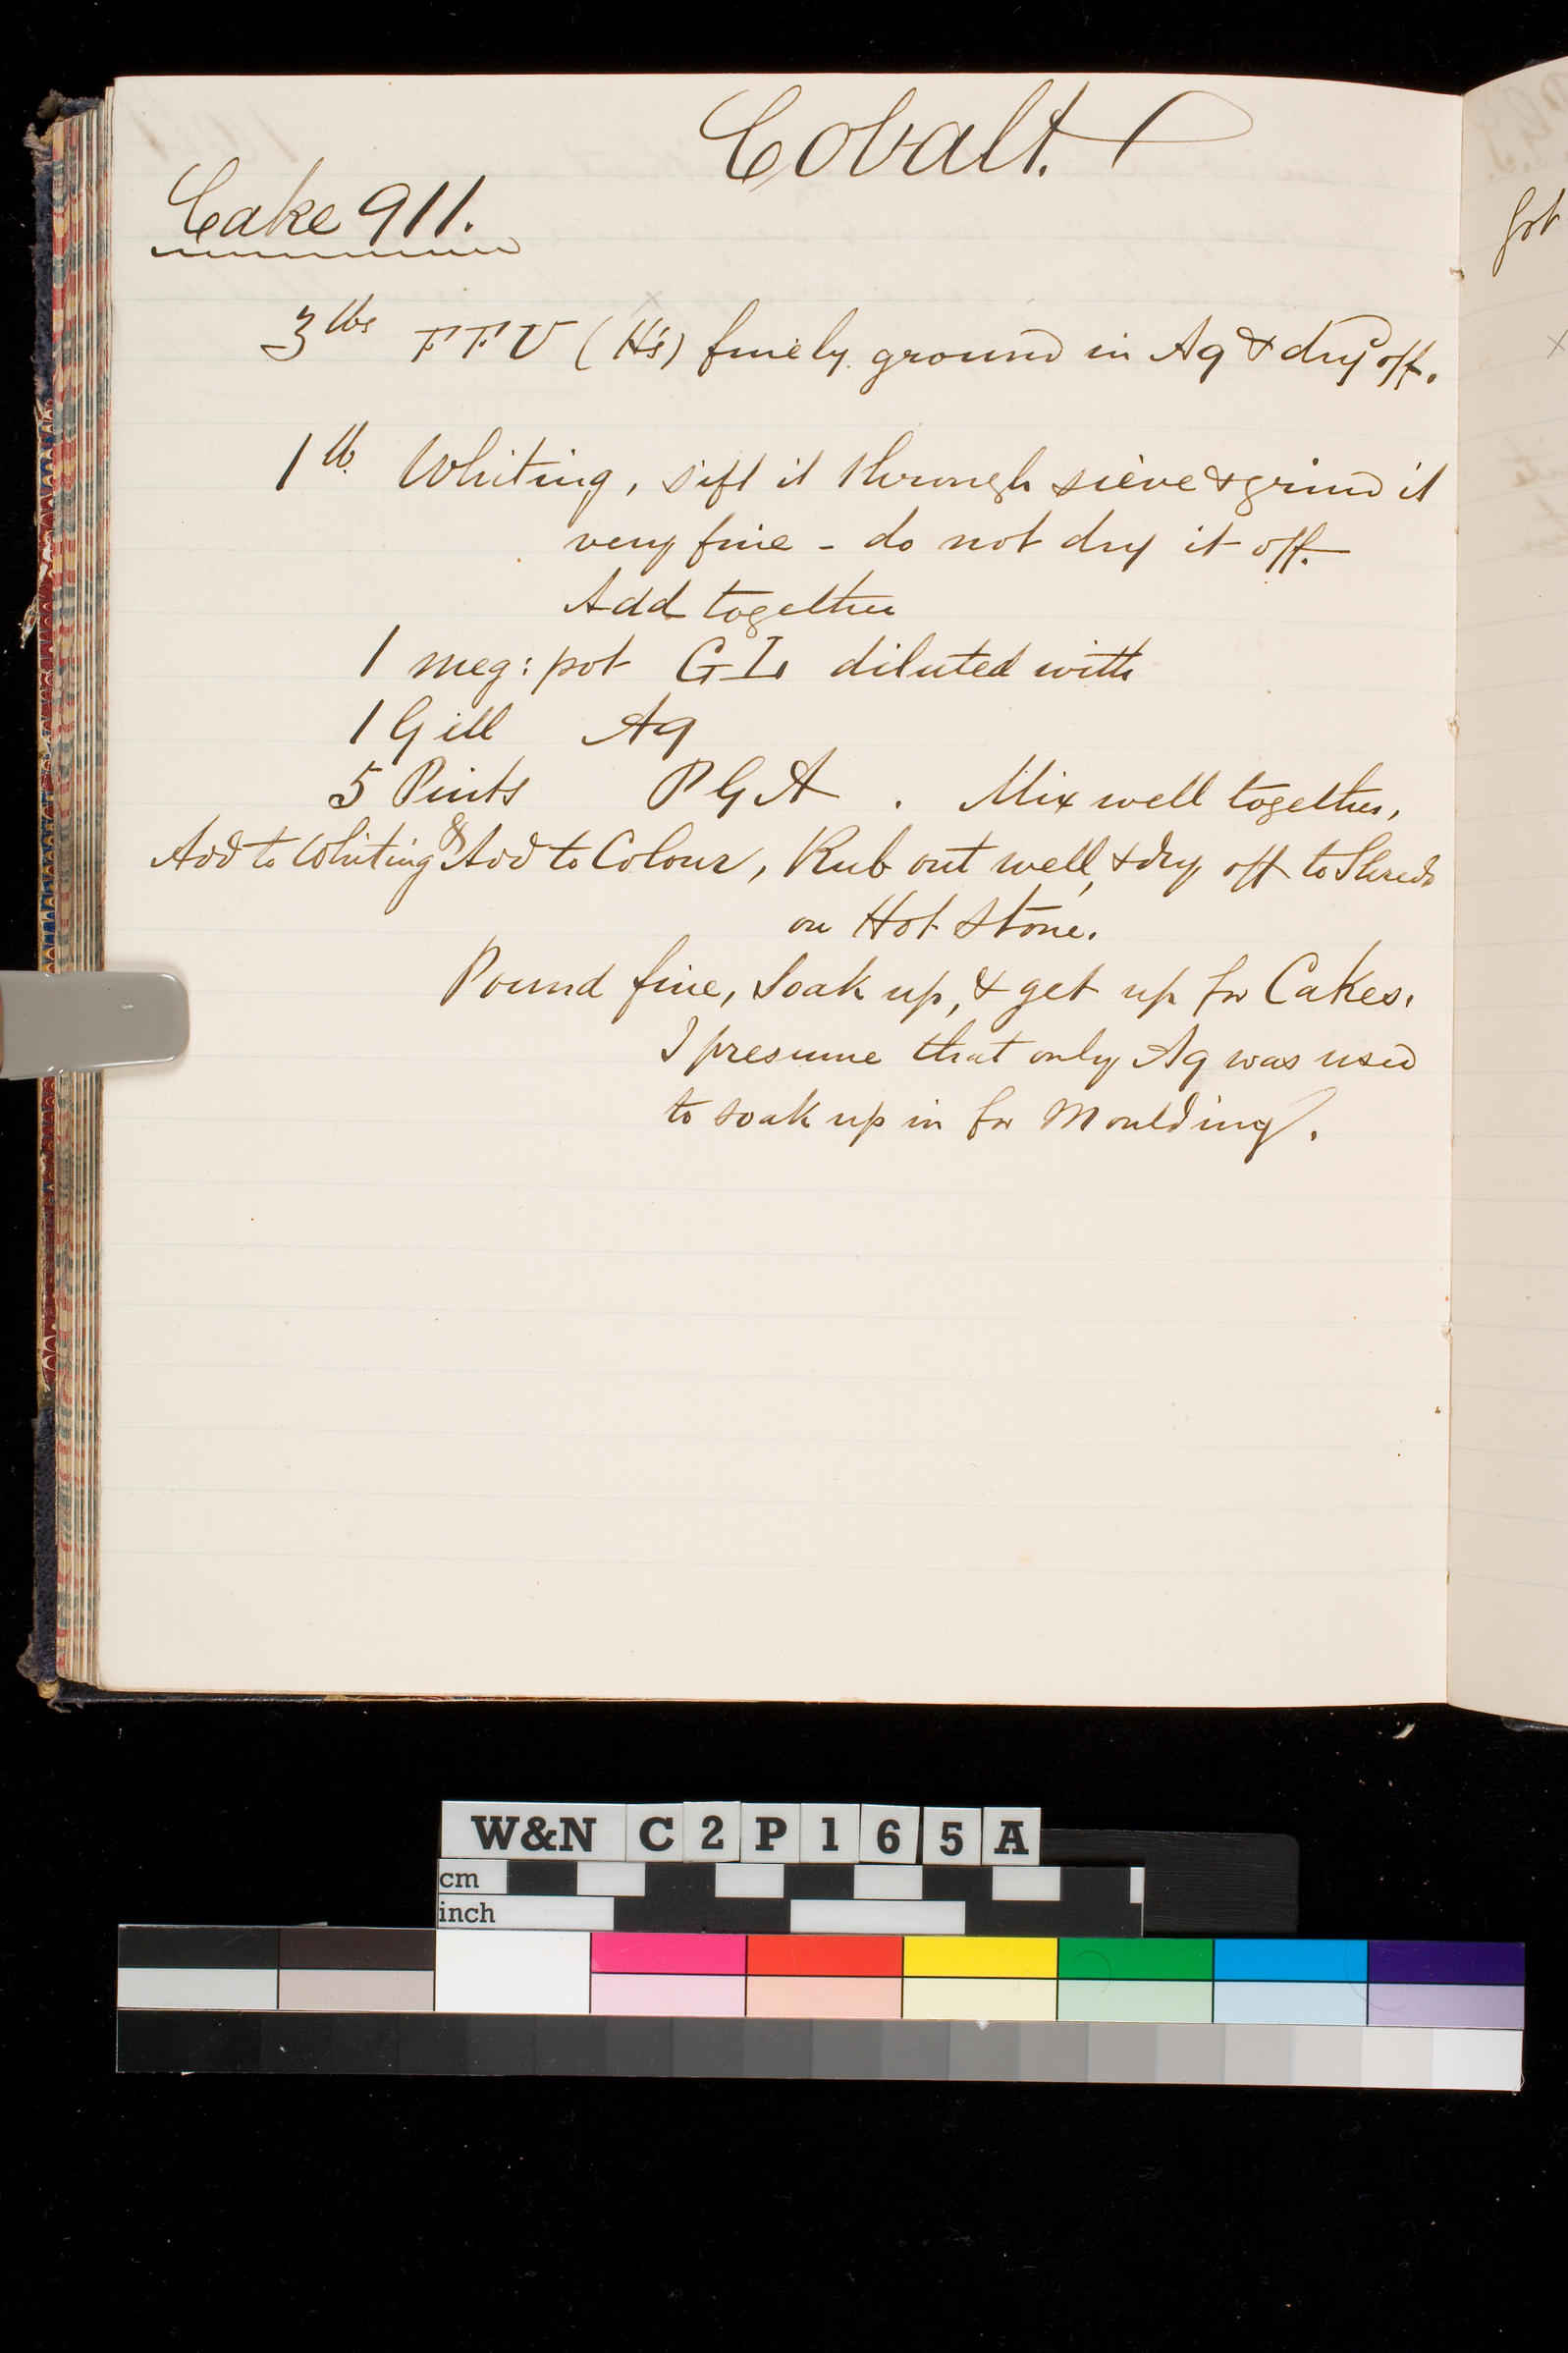 Cobalt.
Cake 911.
3 lbs FFU (H's) finely ground in Aq & dry off.
1 lb Whiting, sift it through sieve & grind it
very fine - do not dry it off.
Add together
1 meg: pot GL diluted with
1 Gill Aq
5 Pints PGA. Mix well together,
Add to Whiting & Add to Colour, Rub out well, & dry off to Shreds
on Hot Stone.
Pound fine, Soak up, & get up for Cakes.
I presume that only Aq was used
to soak up in for Moulding.
W&N C2P165A
cm
inch